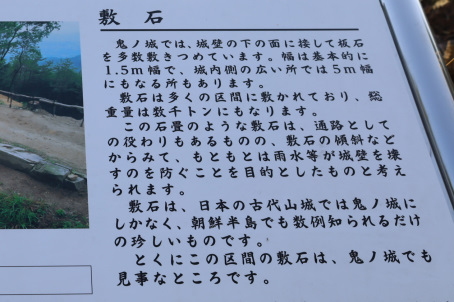 敷石
鬼ノ城では、城壁の下の面に接して板石
を多数敷きつめています。幅は基本的に
1.5m幅で、城内側の広い所では5m幅
にもなる所もあります。
敷石は多くの区間に敷かれており、総
重量は数千トンにもなります。
この石畳のような敷石は、通路として
の役わりもあるものの、敷石の傾斜など
からみて、もともとは雨水等が城壁を壊
すのを防ぐことを目的としたものと考え
られます。
敷石は、日本の古代山城では鬼ノ城に
しかなく、朝鮮半島でも数例知られるだけ
の珍しいものです。
とくにこの区間の敷石は、鬼ノ城でも
見事なところです。